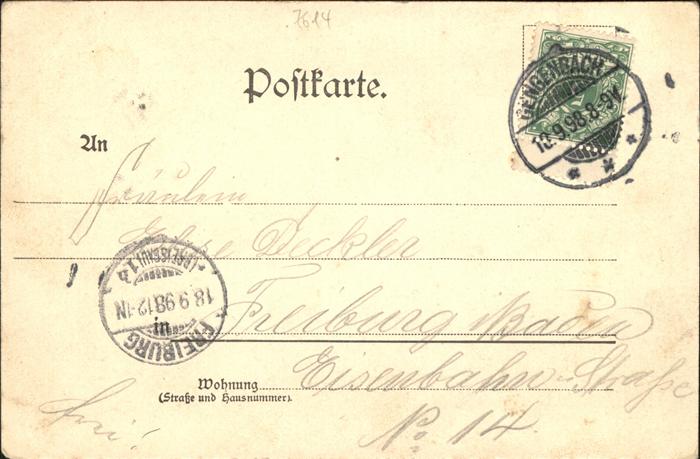 7614
Postkarte.
GENGENBACH
18.9.98.8-9V.
An
Fräulein
Else Deckler
(BREISGAU) 1b
18 9 98.12-1N
FREIBURG
in Freiburg i/Baden
Wohnung Eisenbahn-Straße
(Straße und Hausnummer).
No 14.
frei!